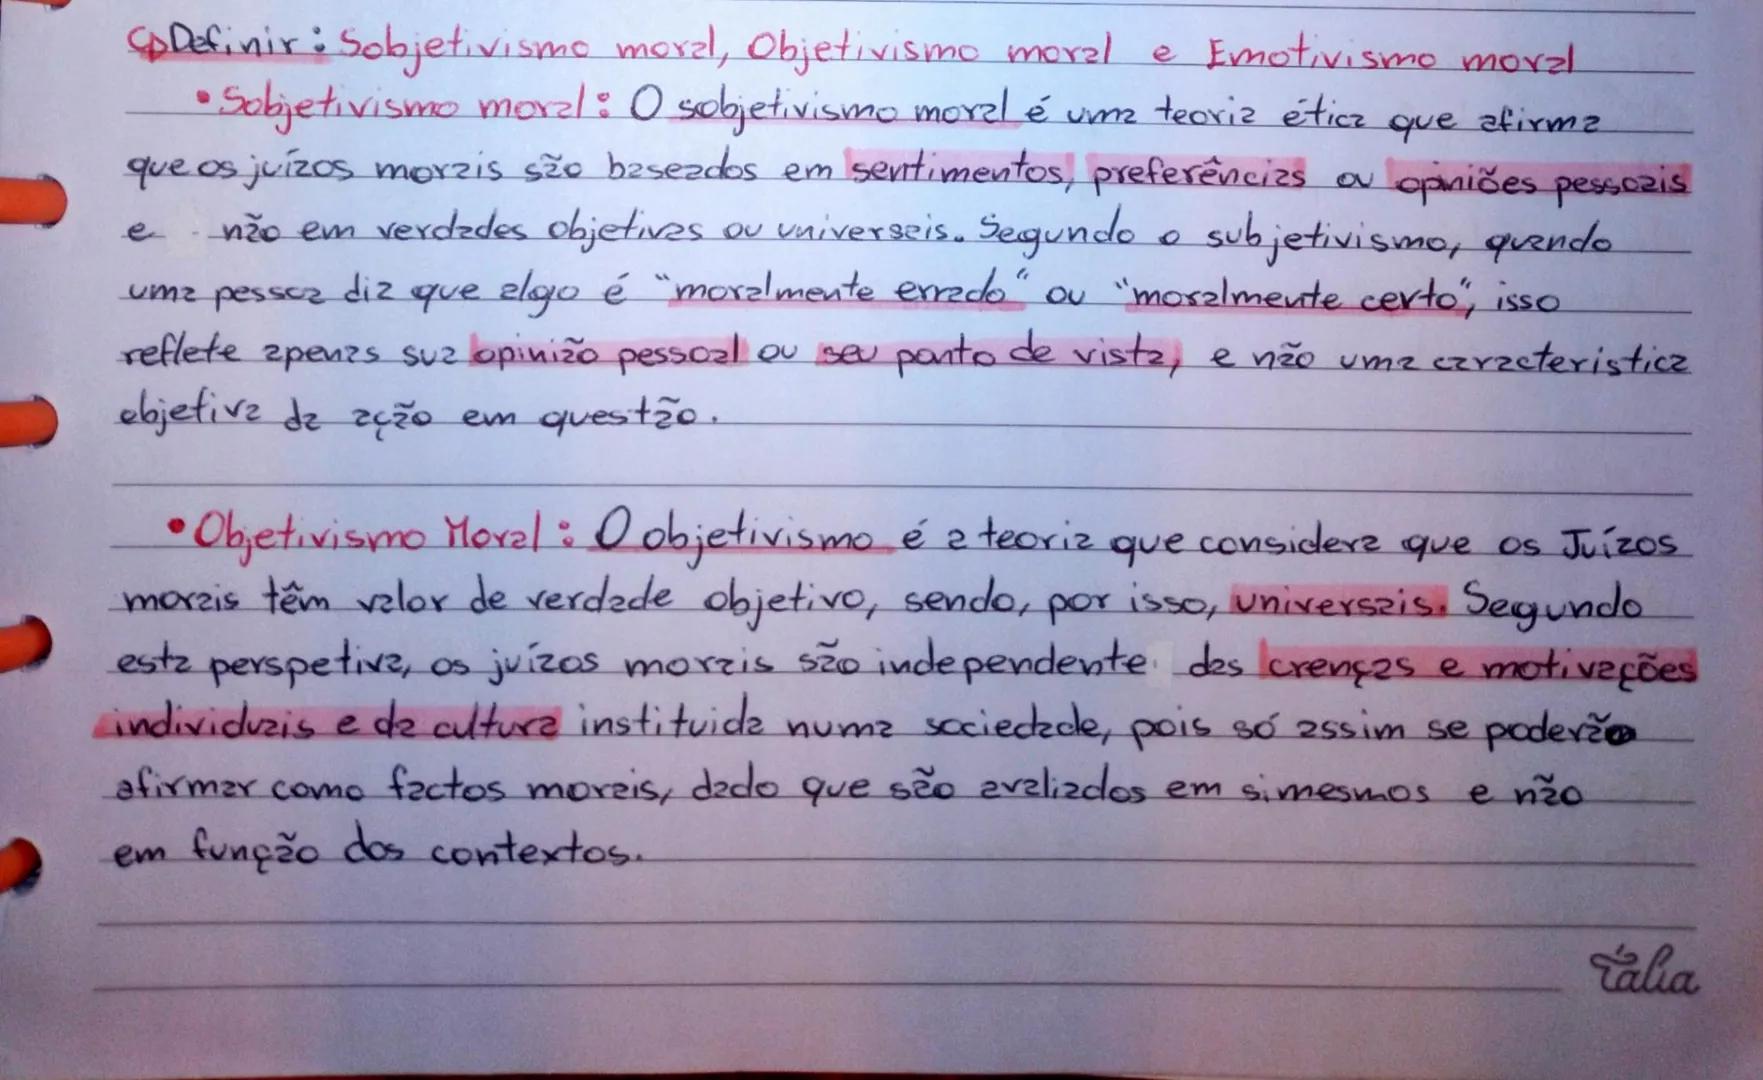 ↳Definir: Sobjetivismo moral, Objetivismo moral e Emotivismo moral
• Sobjetivismo moral: O sobjetivismo moral é uma teoria ética que afirma
que os juízos morais são baseados em sentimentos, preferências ou opiniões pessoais
e não em verdades objetivas ou universais. Segundo o subjetivismo, quando
uma pessoa diz que algo é "moralmente errado" ou "moralmente certo", isso
reflete apenas sua opinião pessoal ou seu ponto de vista, e não uma caracteristica
objetiva da ação em questão.
• Objetivismo Moral: O objetivismo é a teoria que considera que os Juízos
morais têm valor de verdade objetivo, sendo, por isso, universais. Segundo
esta perspetiva, os juízos morais são independente das crenças e motivações
individuais e da cultura instituida numa sociedade, pois só assim se poderão
afirmar como factos morais, dado que são avaliados em si mesmos e não
em função dos contextos.
Tália